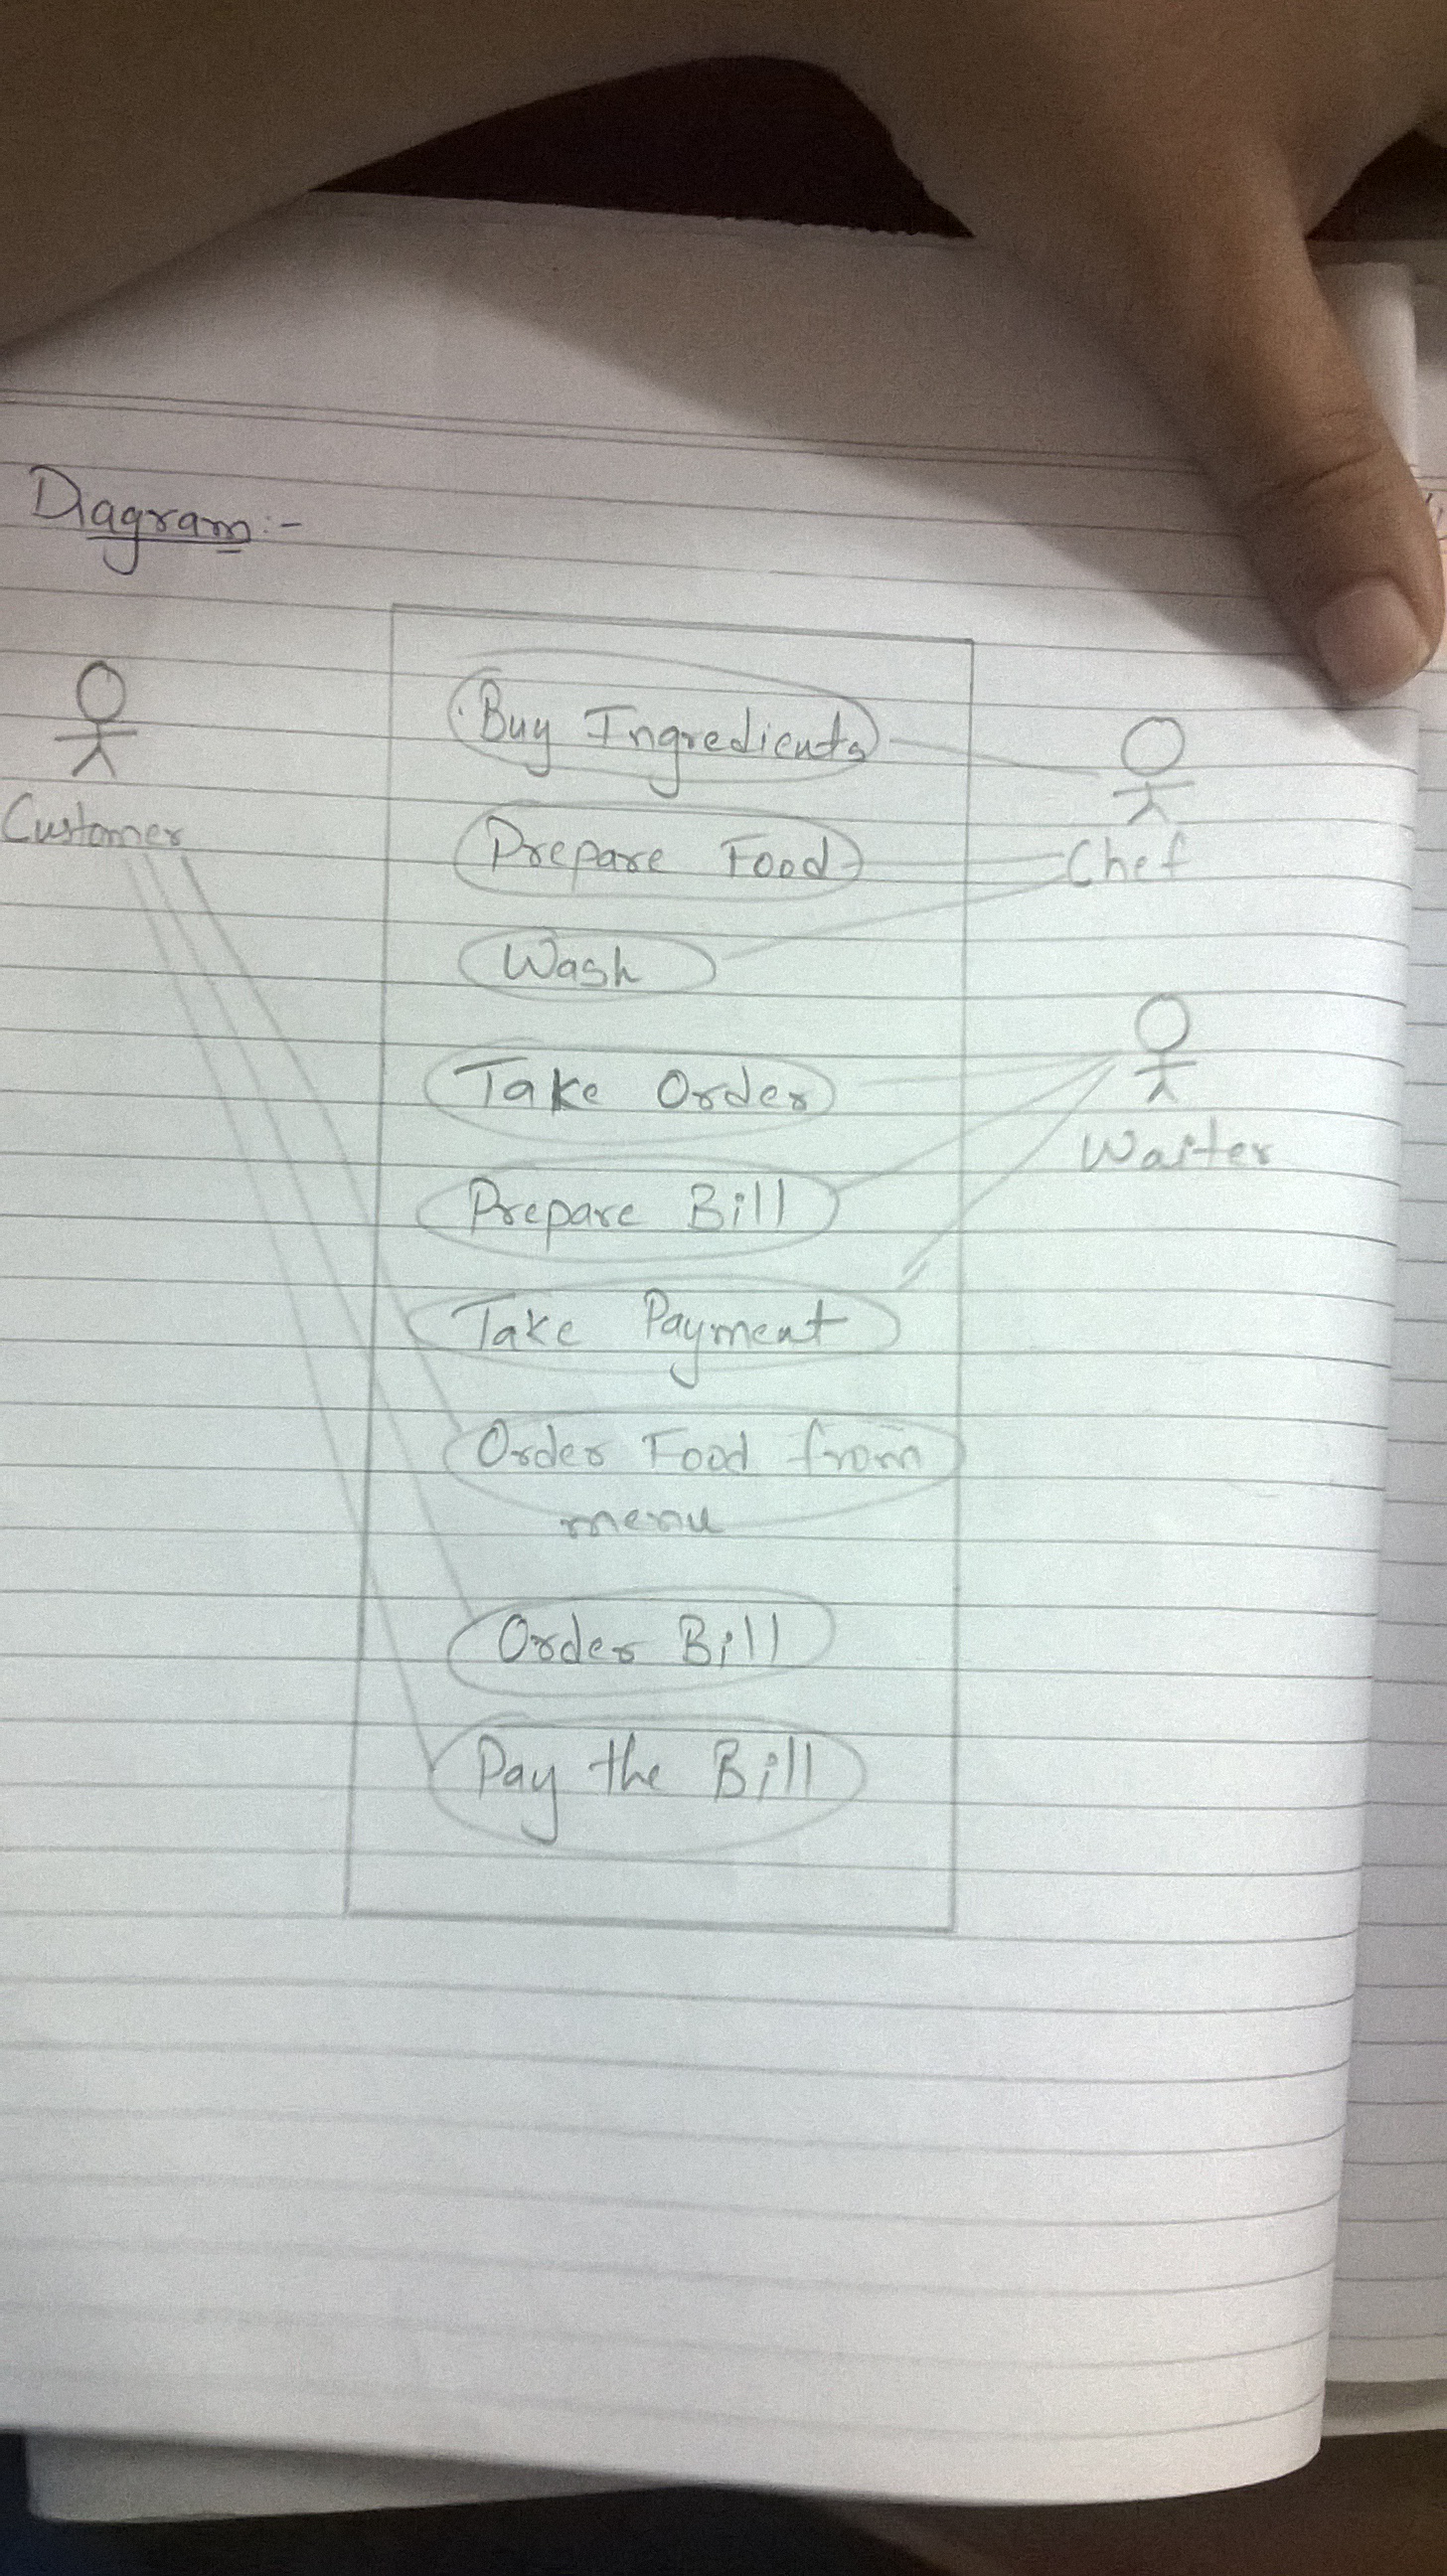 Diagram:-
Customer
Buy Ingredients
Prepare Food
Chef
Wash
Take Order
Waiter
Prepare Bill
Take Payment
Order Food from
menu
Order Bill
Pay the Bill